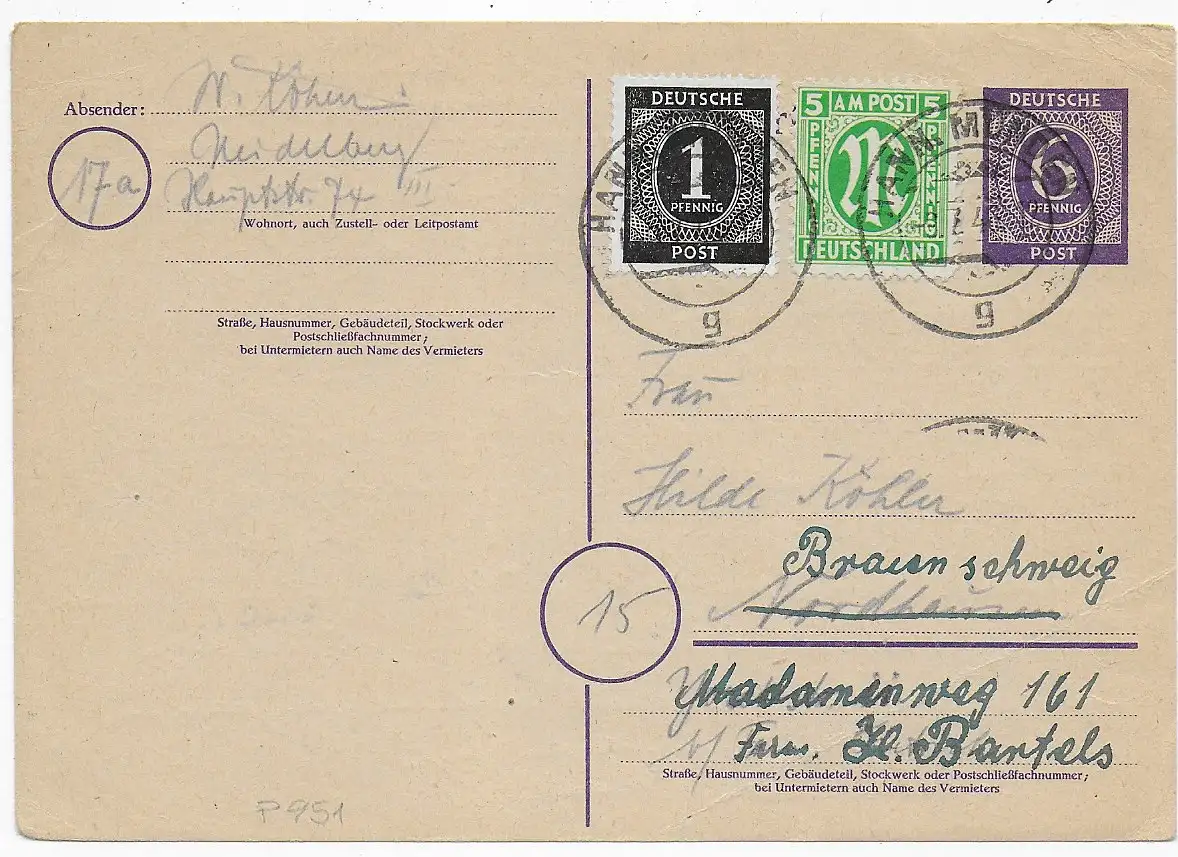 Absender:
W. Köhler
Heidelberg
17a
Hauptstr. 74 III.
Wohnort, auch Zustell- oder Leitpostamt
Straße, Hausnummer, Gebäudeteil, Stockwerk oder
Postschließfachnummer;
bei Untermietern auch Name des Vermieters
DEUTSCHE
1
PFENNIG
POST
5 AM POST 5
PFENNIG
M
PFENNIG
DEUTSCHLAND
DEUTSCHE
6
PFENNIG
POST
HANN.
g
HANN. MÜNDEN
g
Frau
Hilde Köhler
Braunschweig
Nordhausen
15
Madamenweg 161
b/ Firma. H. Bartels
Straße, Hausnummer, Gebäudeteil, Stockwerk oder Postschließfachnummer;
bei Untermietern auch Name des Vermieters
P951